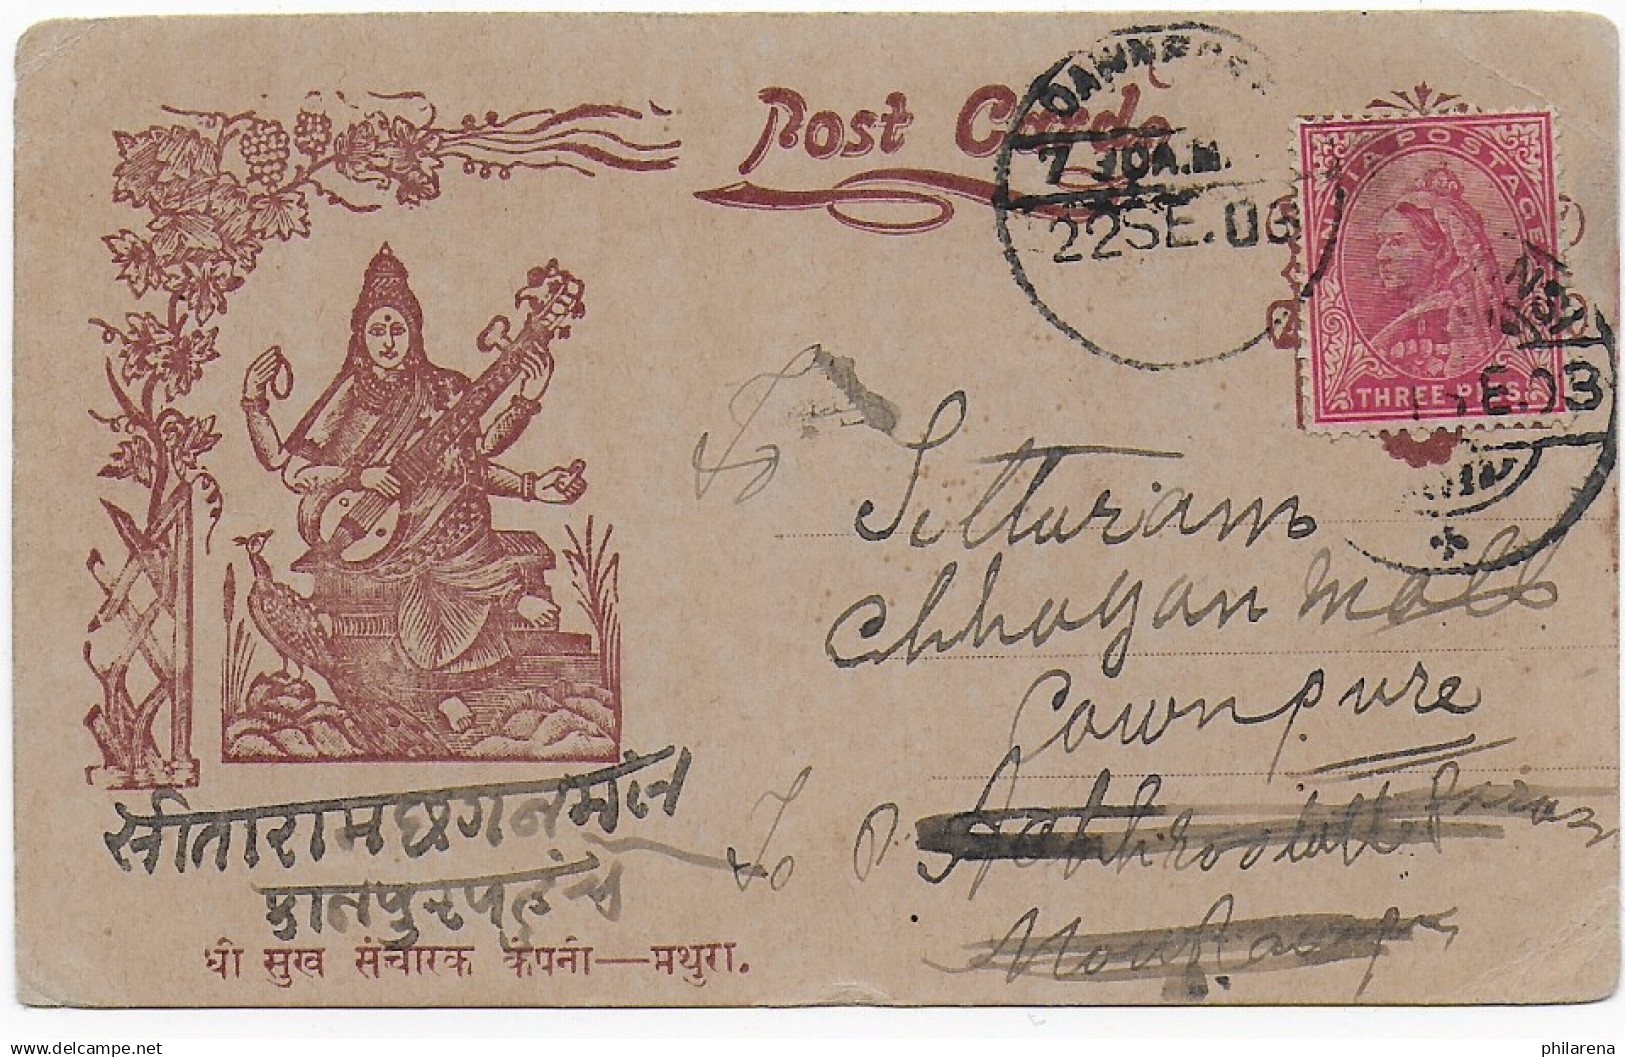 Post Cards
7 30 A.M.
22 SE. 03
INDIA POSTAGE
THREE PIES.
SE. 03
To
Sitturam
Chhogan Mall
Cownpure
सीताराम छगनमल
कानपुर पहुंच
To
धी सुख संचारक कंपनी—मथुरा.
delcampe.net
philarena